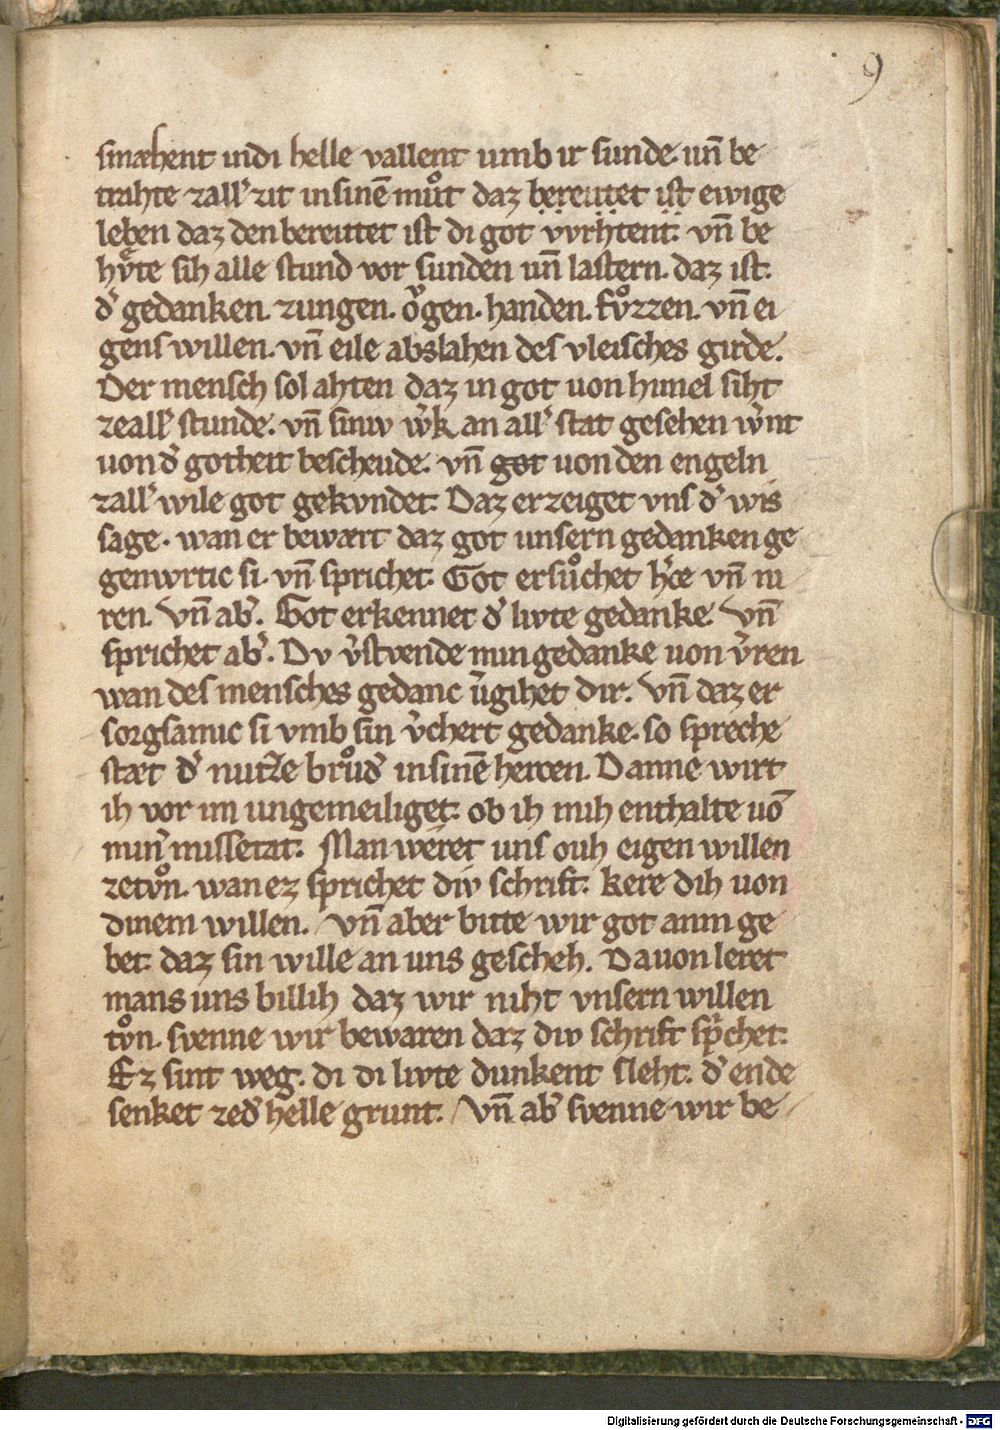 9
smæhent indi helle vallent umb ir sunde. un̄ be
trahte zall᾿ zit in sinē můt daz bereitet ist ewige
leben daz den bereitet ist di got vvrhtent. vn̄ be
hv̊te sih alle stund vor sunden un̄ lastern. daz ist.
d᾿ gedanken. zungen. o̊gen. handen. fv̊zzen. vn̄ ei
gens willen. vn̄ eile abslahen des vleisches girde.
Der mensch sol ahten daz in got von himel siht
zeall᾿ stunde. vn̄ siniv w᾿k an all᾿ stat gesehen w᾿nt
uon d᾿ gotheit bescheude. vn̄ got uon den engeln
zall᾿ wile got gekvndet. Daz erzeiget vns d᾿ wis
sage. wan er bewært daz got unsern gedanken ge
genwrtic si. vn̄ sprichet. Got ersůchet h᾿ce vn̄ ni
ren. Vn̄ ab᾿. Got erkennet d᾿ livte gedanke. Vn̄
sprichet ab᾿. Dv v᾿stvende min gedanke uon v᾿ren
wan des mensches gedanc v᾿gihet dir. Vn̄ daz er
sorgsamic si vmb sin v᾿chert gedanke. so spreche
stæt d᾿ nutze brůd᾿ in sinē hercen. Danne wirt
ih vor im ungemeiliget. ob ih mih enthalte uō
min᾿ missetat. Man weret uns ouh eigen willen
zetv̊n. wan ez sprichet div schrift. kere dih uon
dinem willen. Vn̄ aber bitte wir got anm ge
bet. daz sin wille an uns gescheh. Da uon leret
mans uns billih daz wir niht vnsern willen
tv̊n. svenne wir bewaren daz div schrift sp᾿chet.
Ez sint weg. di di livte dunkent sleht. d᾿ ende
senket zed᾿ helle grunt. Vn̄ ab᾿ svenne wir be
Digitalisierung gefördert durch die Deutsche Forschungsgemeinschaft - DFG